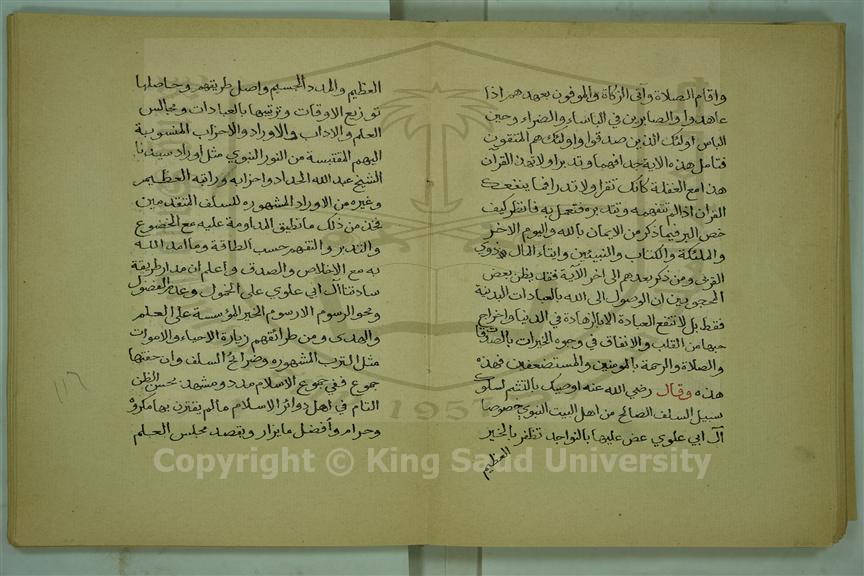 واقام الصلاة وآتى الزكاة والموفون بعهدهم اذا
عاهدوا والصابرين في الباساء والضراء وحين
الباس اولئك الذين صدقوا واولئك هم المتقون
فتامل هذه الاية جدا فهما وتدبرا ولا تهذ القران
هذا مع الغفلة كانك تقرا ولا تدرا فما ينفعك
القران اذا لم تتفهمه وتتدبره فتعمل به فانظر كيف
خص البر فيما ذكر من الايمان بالله واليوم الاخر
والملئكة والكتاب والنبيئين وايتاء المال ذوي
القربى ومن ذكر بعدهم الى اخر الآية فقد يظن بعض
المحجوبين ان الوصول الى الله بالعبادات البدنية
فقط بل لا تنفع العبادة الا بالزهادة في الدنيا واخراج
حبها من القلب والانفاق في وجوه الخيرات بالصدقا
والصلاة والرحمة بالمومنين والمستضعفين فهذه
هذه وقال رضي الله عنه اوصيك بالتتبع لسلو
سبيل السلف الصالح من اهل البيت النبوي خصوصا
آل ابي علوي عض عليها بالنواجد تظفر بالخير
العظيم
العظيم والمدد الجسيم واصل طريقتهم وحاصلها
توزيع الاوقات وترتيبها بالعبادات ومجالس
العلم والاداب والاوراد والاحزاب المنسوبة
اليهم المقتبسة من النور النبوي مثل أوراد سيدنا
الشيخ عبد الله الحداد واحزابه وراتبه العظيم
وغيره من الاوراد المشهوره للسلف المتقدمين
فخذ من ذلك ما تطيق المداومة عليه مع الخضوع
والتدبر والتفهم حسب الطاقة وما امد الله
به مع الاخلاص والصدق واعلم ان مدار طريقة
سادتنا آل ابي علوي على الخمول وعدم الفضول
ومحو الرسوم الا رسوم الخير المؤسسة على العلم
والهدى ومن طرائقهم زيارة الاحياء والاموات
مثل الترب المشهوره وضرائح السلف وان حفتها
جموع ففي جموع الاسلام مدد ومشهد بحسن الظن
التام في اهل دوائر الاسلام ما لم يقترن بها مكروه
وحرام وأفضل ما يزار ويقصد مجلس العلم
١١٦
Copyright © King Saud University
1957